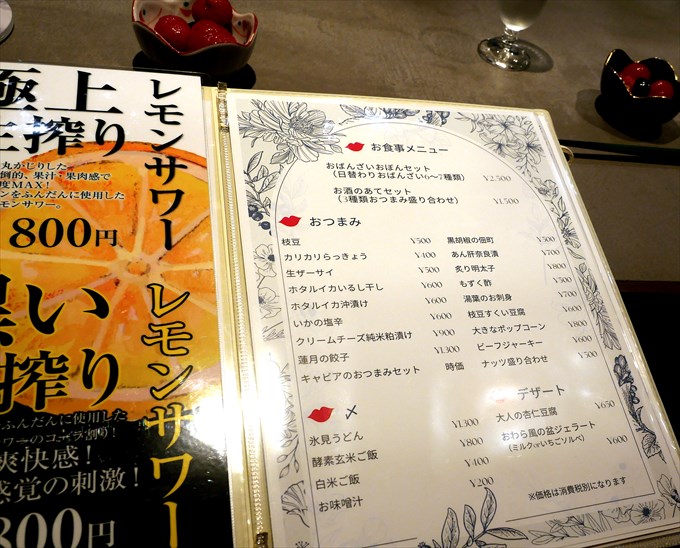 極上
生搾り
丸かじりした
倒的、果汁・果肉感で
度MAX!
ンをふんだんに使用した
モンサワー。
800円
レモンサワー
黒い
搾り
をふんだんに使用した
ワーのコーラ割り!
爽快感!
感覚の刺激!
800円
レモンサワー
お食事メニュー
おばんざいおぼんセット
(日替わりおばんざい6〜7種類) ¥2,500
お酒のあてセット
(3種類おつまみ盛り合わせ) ¥1,500
おつまみ
枝豆 ¥500
カリカリらっきょう ¥400
生ザーサイ ¥500
ホタルイカいるし干し ¥600
ホタルイカ沖漬け ¥600
いかの塩辛 ¥600
クリームチーズ純米粕漬け ¥900
蓮月の餃子 ¥1,300
キャビアのおつまみセット 時価
黒胡椒の佃町 ¥500
あん肝奈良漬 ¥700
炙り明太子 ¥800
もずく酢 ¥500
湯葉のお刺身 ¥700
枝豆すくい豆腐 ¥600
大きなポップコーン ¥800
ビーフジャーキー ¥600
ナッツ盛り合わせ ¥500
〆
氷見うどん ¥1,300
酵素玄米ご飯 ¥800
白米ご飯 ¥400
お味噌汁 ¥200
デザート
大人の杏仁豆腐 ¥650
おわら風の盆ジェラート
(ミルクorいちごソルベ) ¥600
※価格は消費税別になります